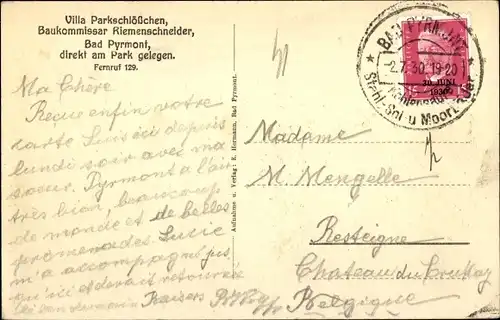 Villa Parkschlößchen,
Baukommissar Riemenschneider,
Bad Pyrmont,
direkt am Park gelegen.
Fernruf 129.
Ma Chère
Reçu enfin votre
carte Suis ici depuis
lundi soir avec ma
soeur. Pyrmont a l'air
très bien, beaucoup
de monde et de belles
promenades Lucie
m'a accompagné jus
qu'ici et
Baisers
Aufnahme u. Verlag: E. Hermann, Bad Pyrmont.
BAD PYRMONT
-2.7.30.19-20
Stahl-Sol u Moorbäder
30. JUNI
1930
Madame
M. Mengelle
Resteigne
Chateau du
Belgique